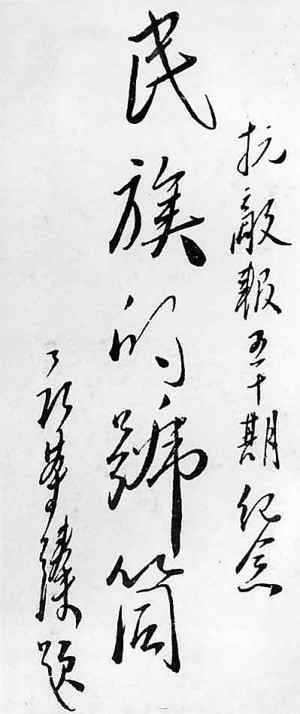 抗敵報五十期紀念
民族的號筒
聶榮臻題